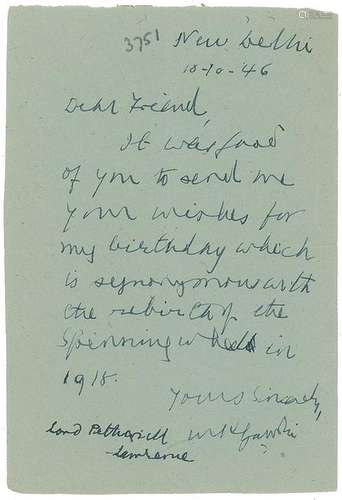 3751 New Delhi
18-10-46
Dear Friend,
It was good
of you to send me
your wishes for
my birthday which
is synonymous with
the rebirth of the
Spinning wheel in
1918.
Yours Sincerely,
Lord Pethwick MKGandhi
Lawrence